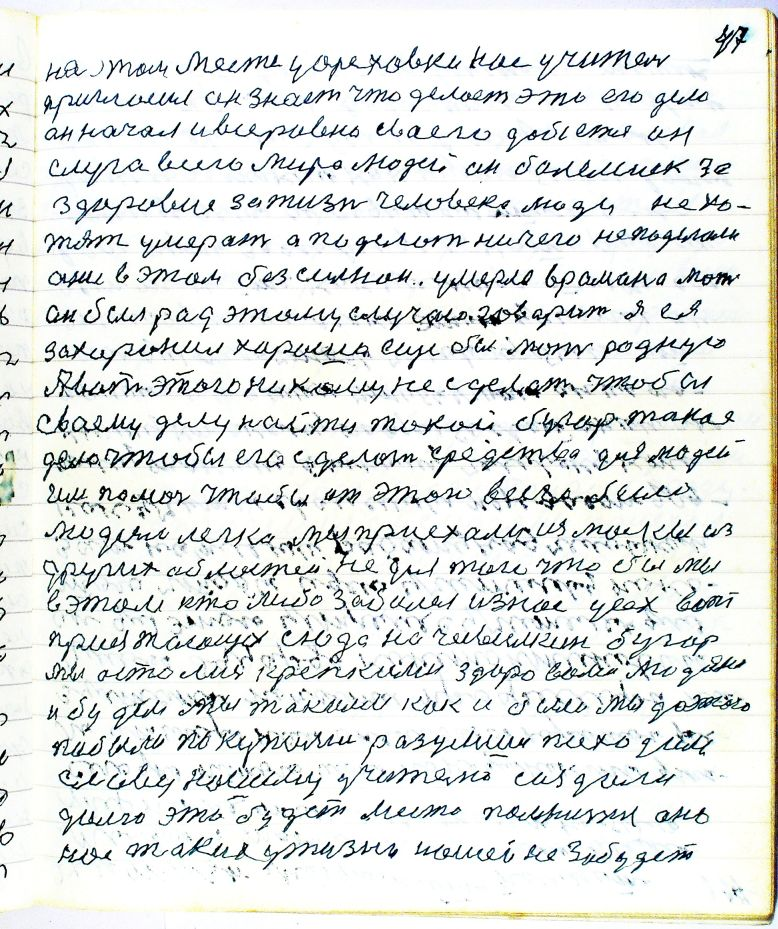 47
на этом месте у ореховки нас учител
пригласил он знает что делает это его дело
он начал и всеровно сваего добется он
слуга всего мира людей он балельшек за
здоровие за жизн человека люди не хо-
тят умерат а поделат ничего не поделали
они в этом бессилнои. умерла врамана мат
он был рад этому случаю говорит я ея
захоронил харашо еще бы мат родную
А вот этого никому не сделат чтобы
сваему делу найти такой бугор такое
дело чтобы его сделат средства для людей
им помоч чтобы от этого всего было
людям легка мы приехали из москвы из
других областей не для того что бы мы
в этом кто либо заболел из нас усех вот
приежающих сюда на чивилкин бугор
мы осталис крепкими здоровами людями
и будем мы такими как и были мы до этого
побыли покупалис разумши походили
славу нашему учителю создали
долго это будет место помнится оно
нас таких у жизни нашей не забудет